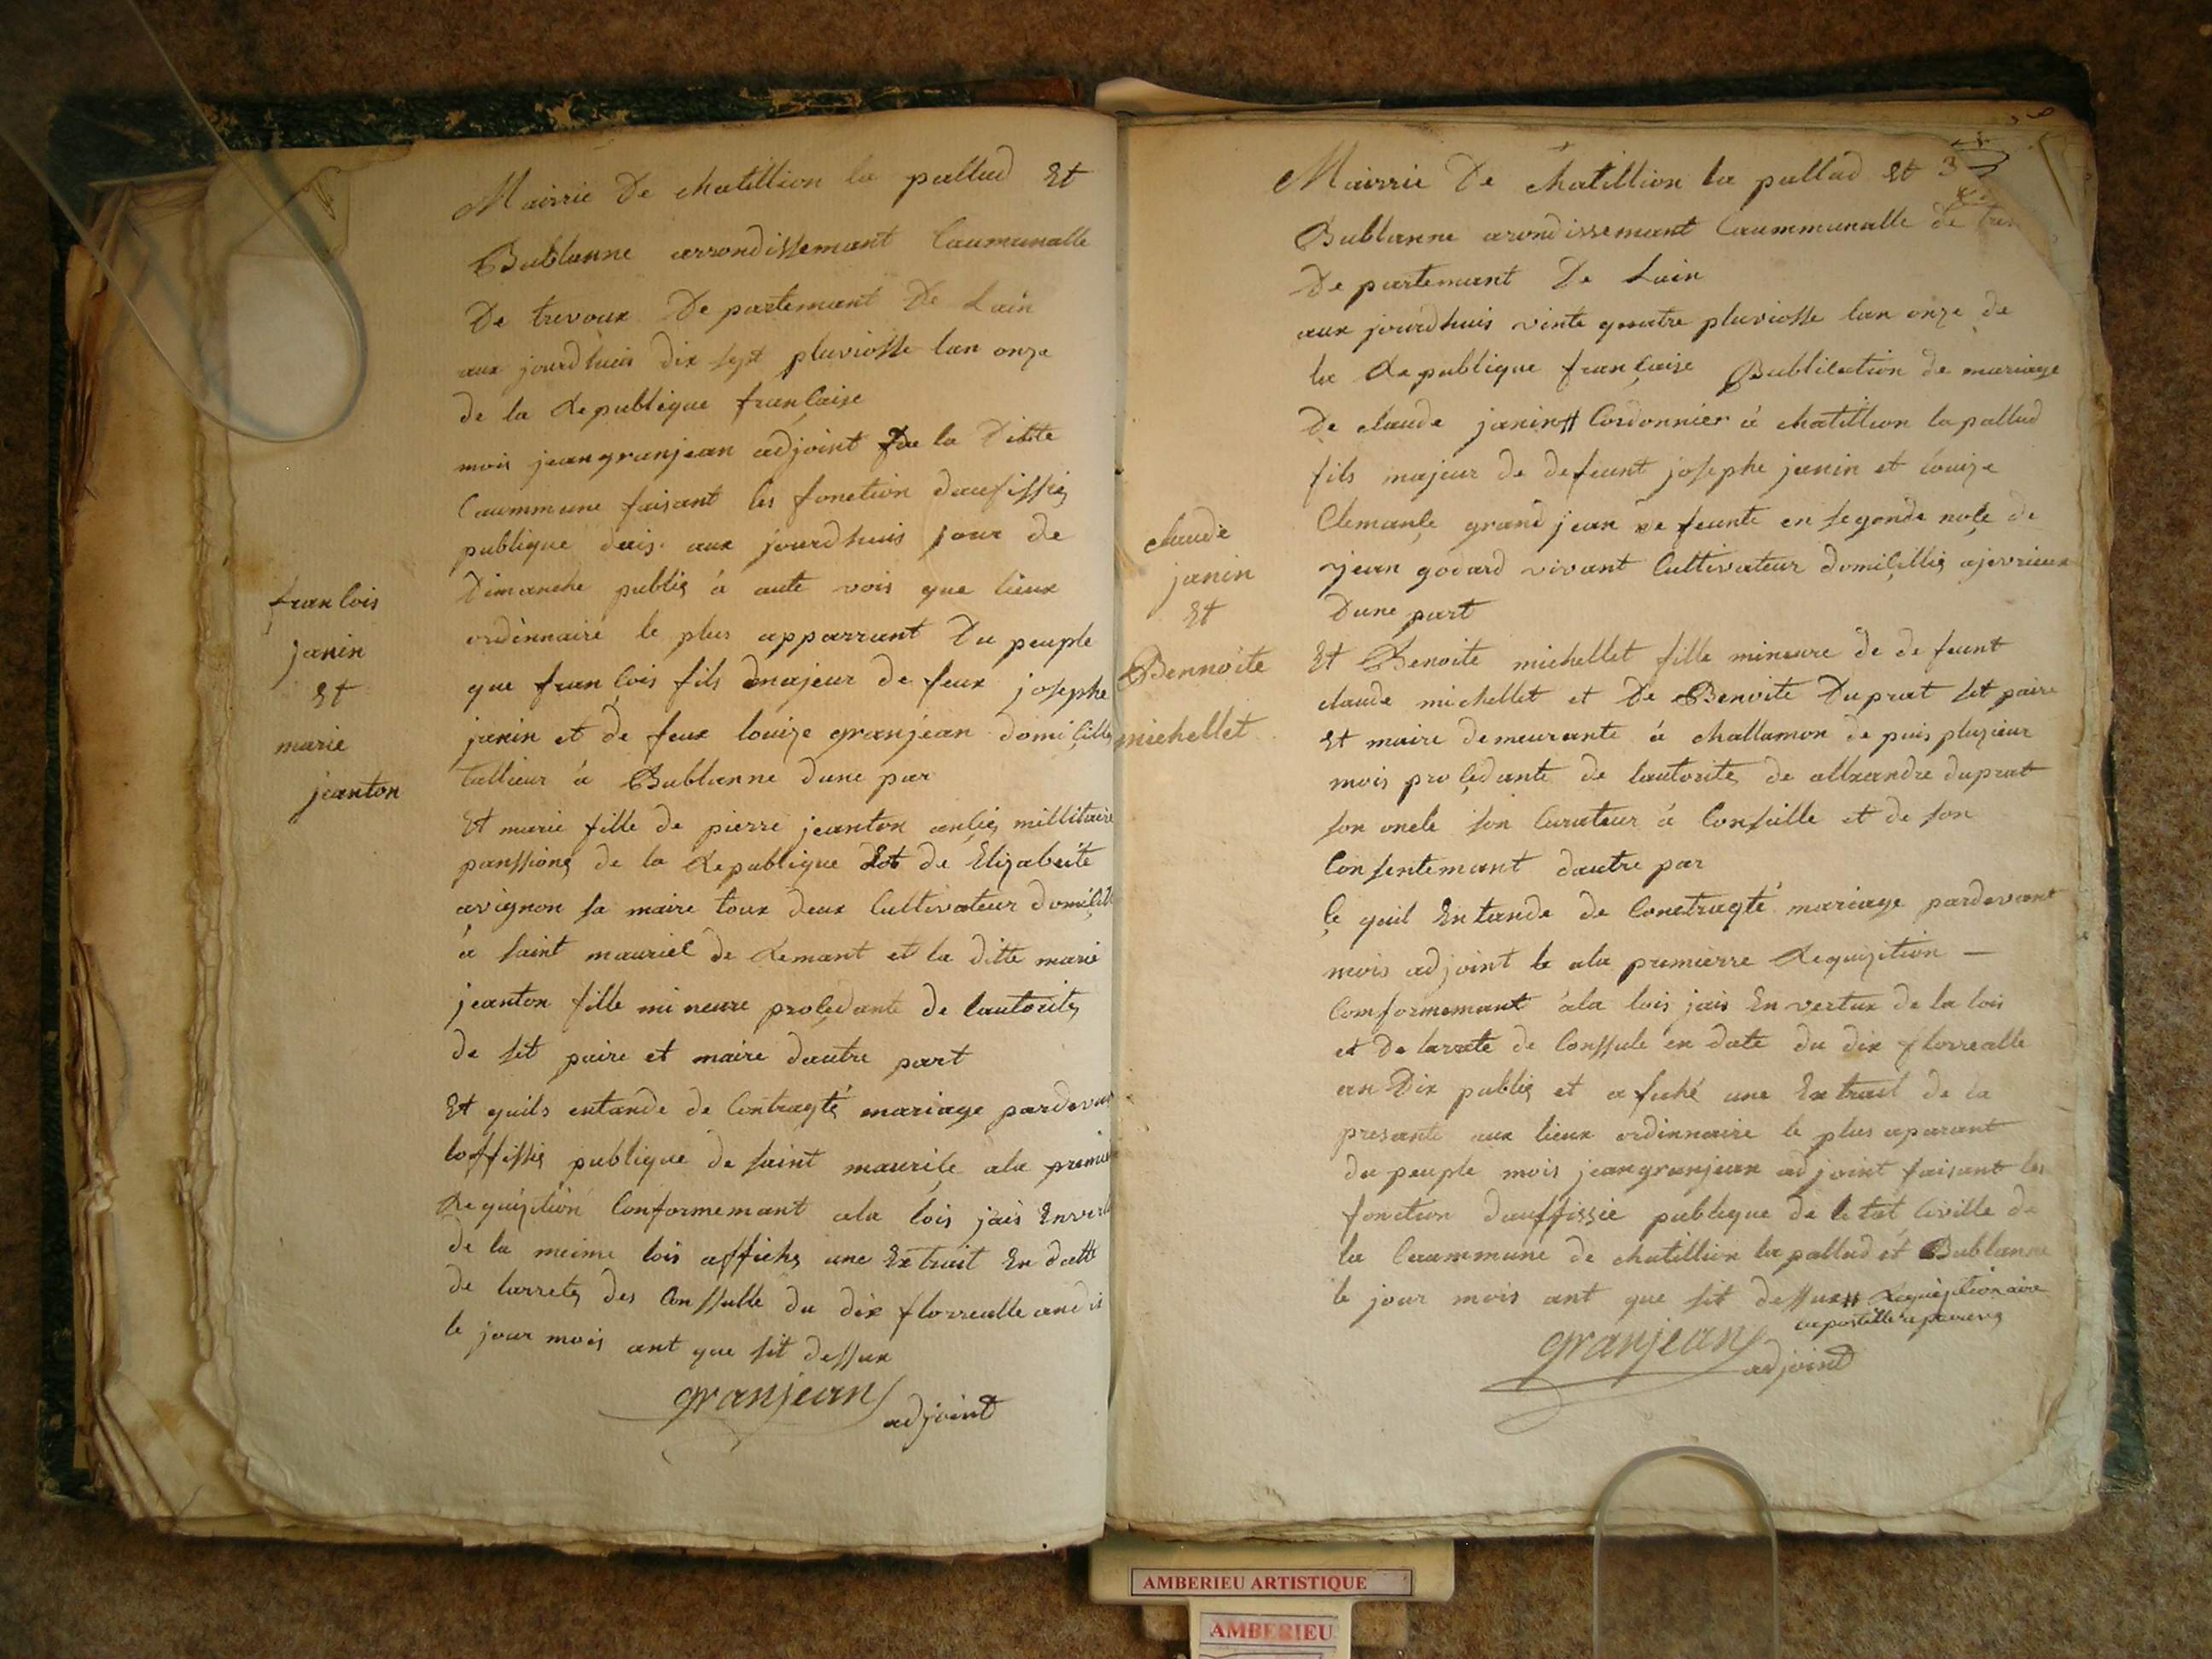 Mairrie De chatillion la pallud Et
Bublanne arrondissemant Caumunalle
De trevoux Departemant De Lain
aux jourdhuis dix sept pluviosse lan onze
de la Republique françaize
mois jeangranjean adjoint De la Ditte
Caummune faisant les fonction daufissié
publique dais aux jourdhuis jour de
Dimanche publié á aute vois que lieux
ordinnaire le plus apparrant Du peuple
que françois fils majeur de feux josephe
janin et de feux louize granjean domicillié
tallieur á Bublanne dune par
Et marie fille de pierre jeanton ancié millitaire
panssioné de la Republique Et de Elizabeite
avignon sa maire toux deux Cultivateur domicillié
á saint mauriel de Remant et la ditte marie
jeanton fille mineure procedante de lautorité
de set paire et maire dautre part
Et quils entande de Contragté mariage pardevant
loffissié publique de saint maurice ala premie
Requizition Conformemant ala lois jais Enver
de la meime lois affiché une Extrait En datte
de larreté des Conssulle du dix florrealle an di
le jour mois ant que sit dessux
granjean adjoint
françois
janin
Et
marie
jeanton
Mairrie De chatillion la pallud et 3
Bublanne arondissemant Caummunalle de tre
Departemant De Lain
aux jourdhuis vinte quatre pluviosse lan onze de
la Republique française Bublication de mariage
De claude janin # Cordonnier á chatillion lapallud
fils majeur de defeunt josephe janin et louize
Clemançe grandjean defeunte en segonde noçe de
jean godard vivant Cultivateur domiçillié ajevrieux
Dune part
Et Benoite michellet fille mineure de defeunt
claude michellet et De Benoite Duprat set paire
Et maire demeurante á challamon depuis pluzieur
mois proçedante de lautorité de allxandre duprat
son oncle son Curateur á Consaille et de son
Consentemant dautre par
Çe quil Entande de Conctragté mariage pardevant
mois adjoint le ala premierre Requizition —
Comformemant ála lois jais En vertux de la lois
et De larrete de Conssule en date du dix florrealle
an Dix publié et afiché une Extrait de la
presante aux lieux ordinnaire le plus aparant
du peuple mois jeangranjean adjoint faisant les
fonction dauffissie publique de letat Civille de
la Caummune de chatillion la pallud et Bublanne
le jour mois ant que sit dessux # Requizitionaire
apostille
granjean adjoint
claude
janin
Et
Bennoite
michellet
AMBERIEU ARTISTIQUE
AMBERIEU